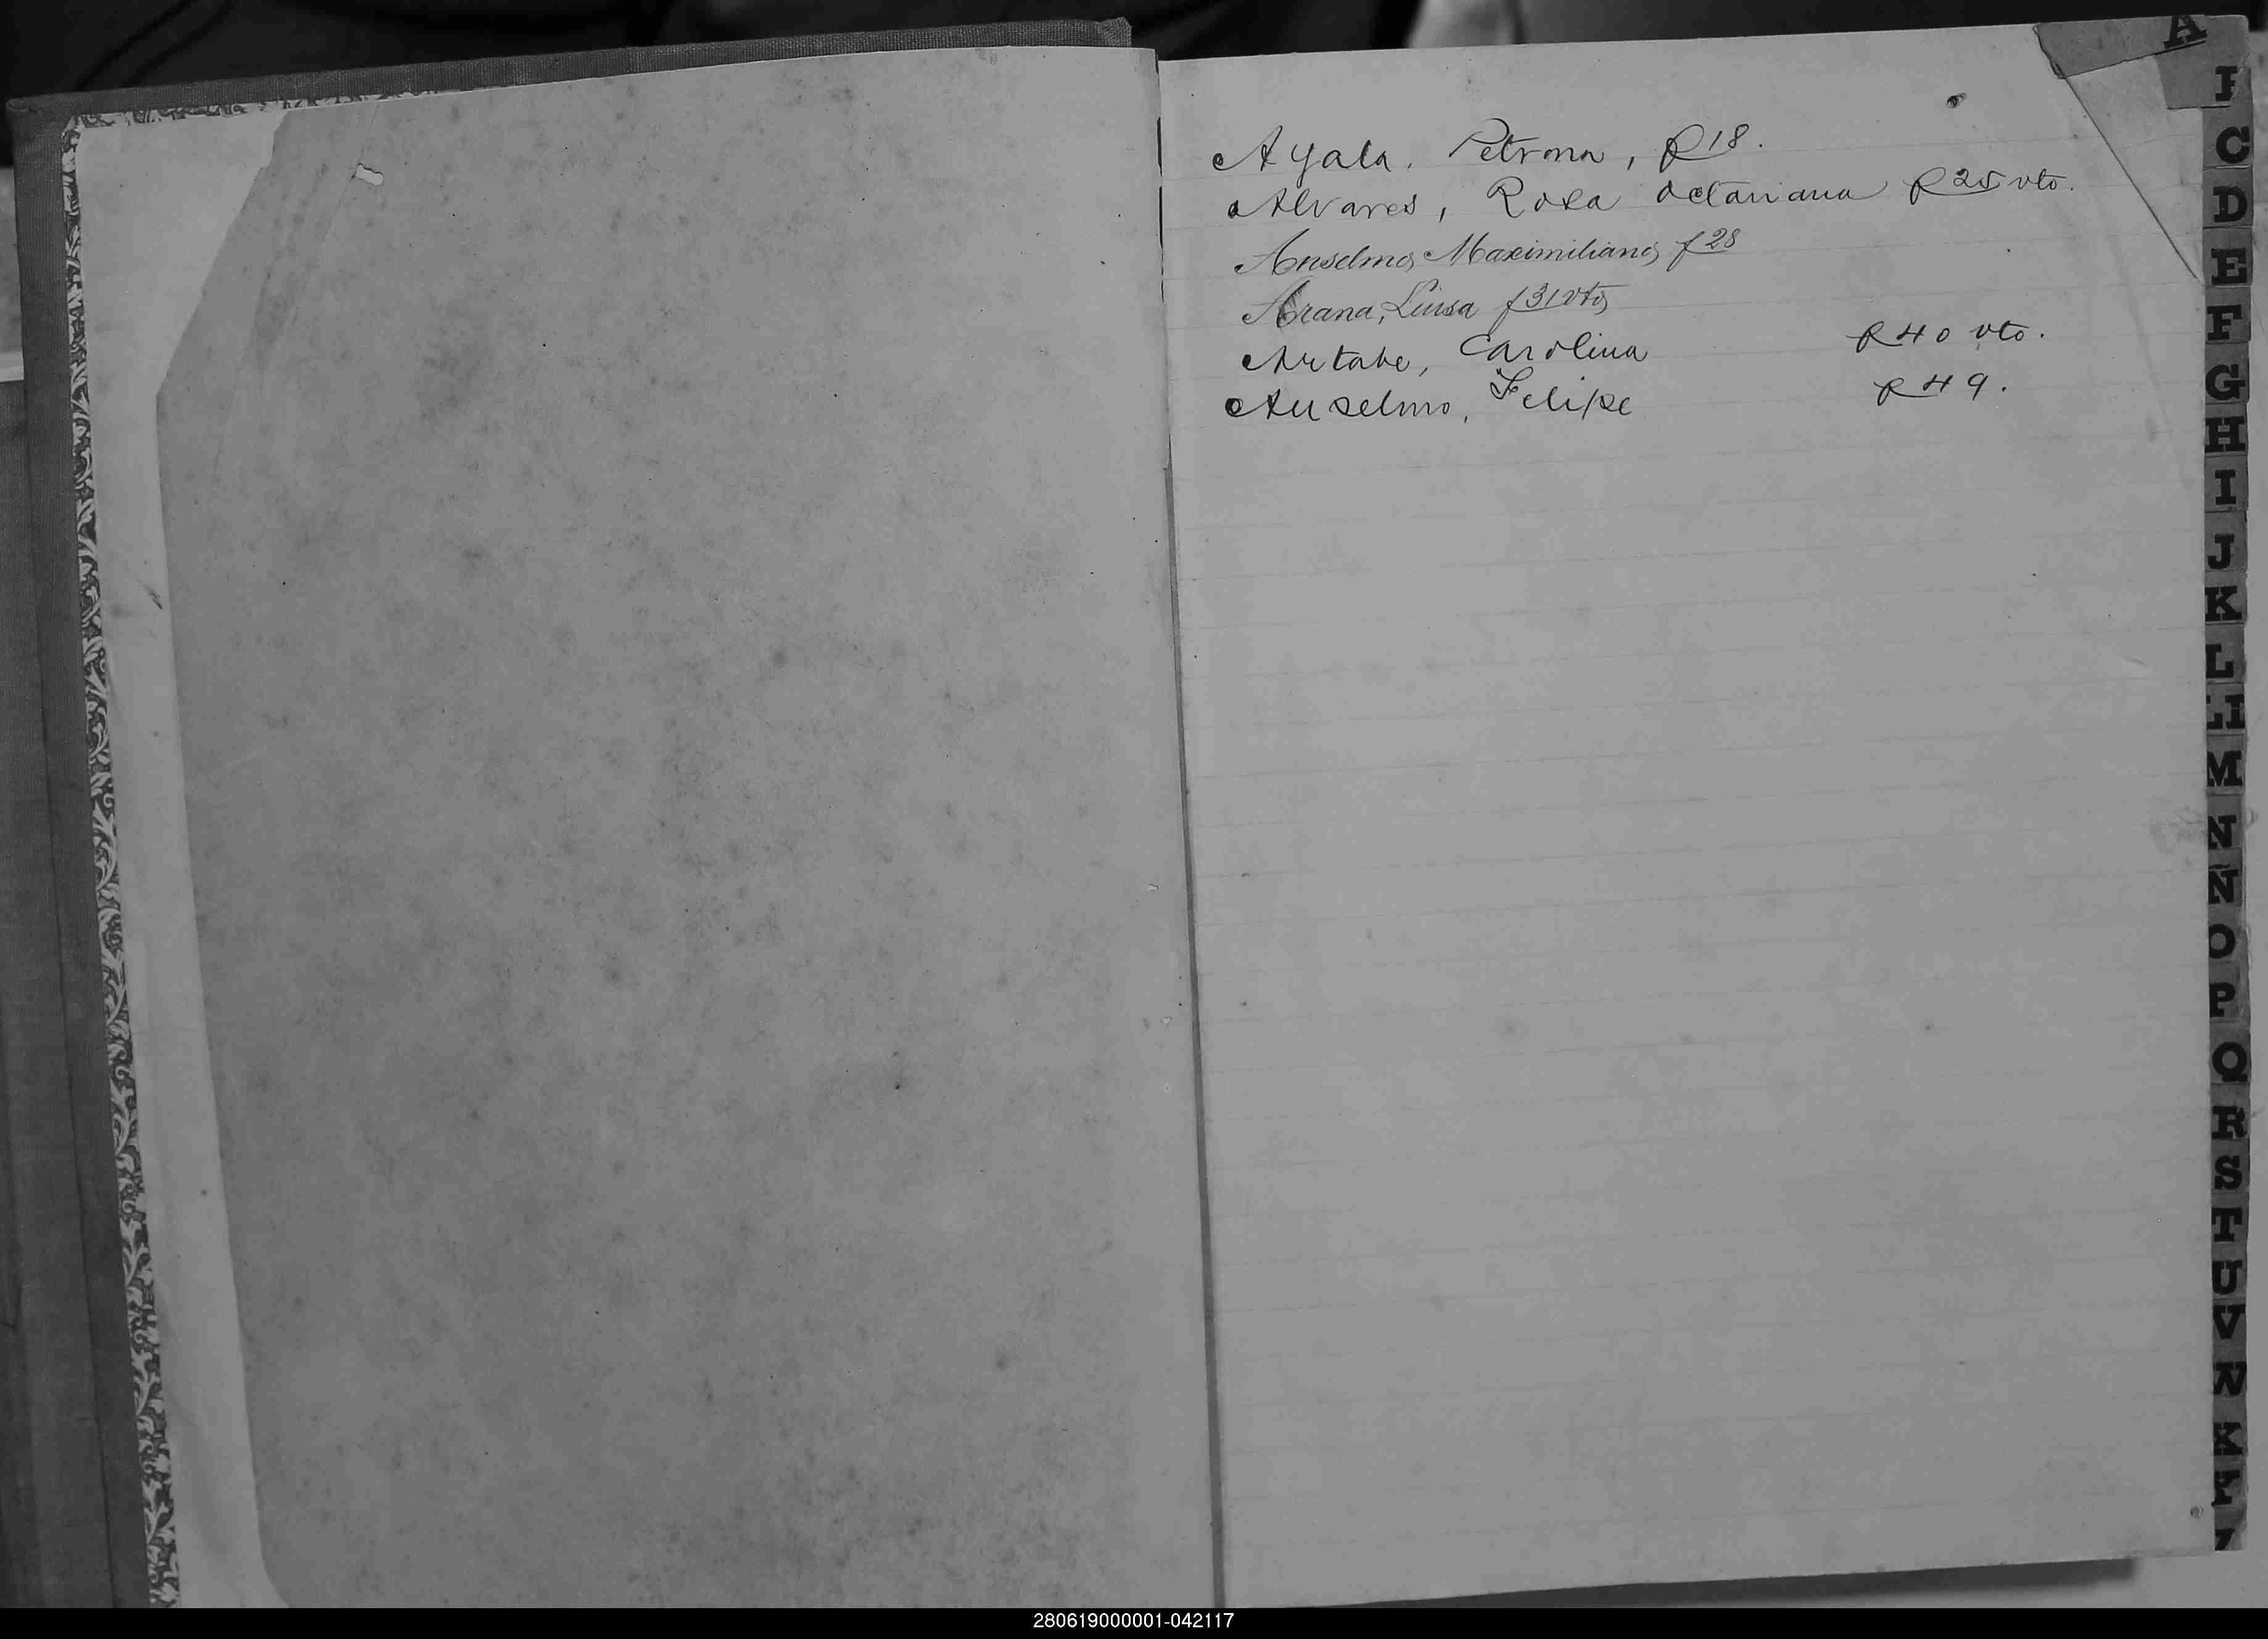 A
Ayala. Petrona, f 18.
Alvares, Rosa Octaviana f 25 vto.
Anselmo, Maximiliano, f 28
Arana, Luisa f 31 vto,
Artabe, Carolina f 40 vto.
Anselmo, Felipe f 49.
C
D
E
F
G
H
I
J
K
L
LL
M
N
Ñ
O
P
Q
R
S
T
U
V
280619000001-042117